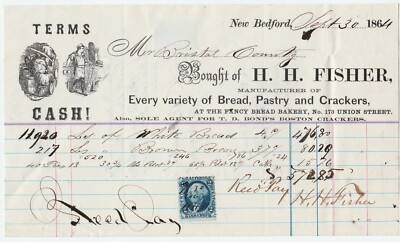 TERMS
CASH!
New Bedford, Sept 30 1864
Mr Bristol County
Bought of H. H. FISHER,
MANUFACTURER OF
Every variety of Bread, Pastry and Crackers,
AT THE FANCY BREAD BAKERY, No. 173 UNION STREET,
Also, SOLE AGENT FOR T. D. BOND'S BOSTON CRACKERS.
11920 Lbs of White Bread 4c 476 80
217 Lbs of Brown 37 80 29
15 76
572 85
Recd Pay
H. H. Fisher